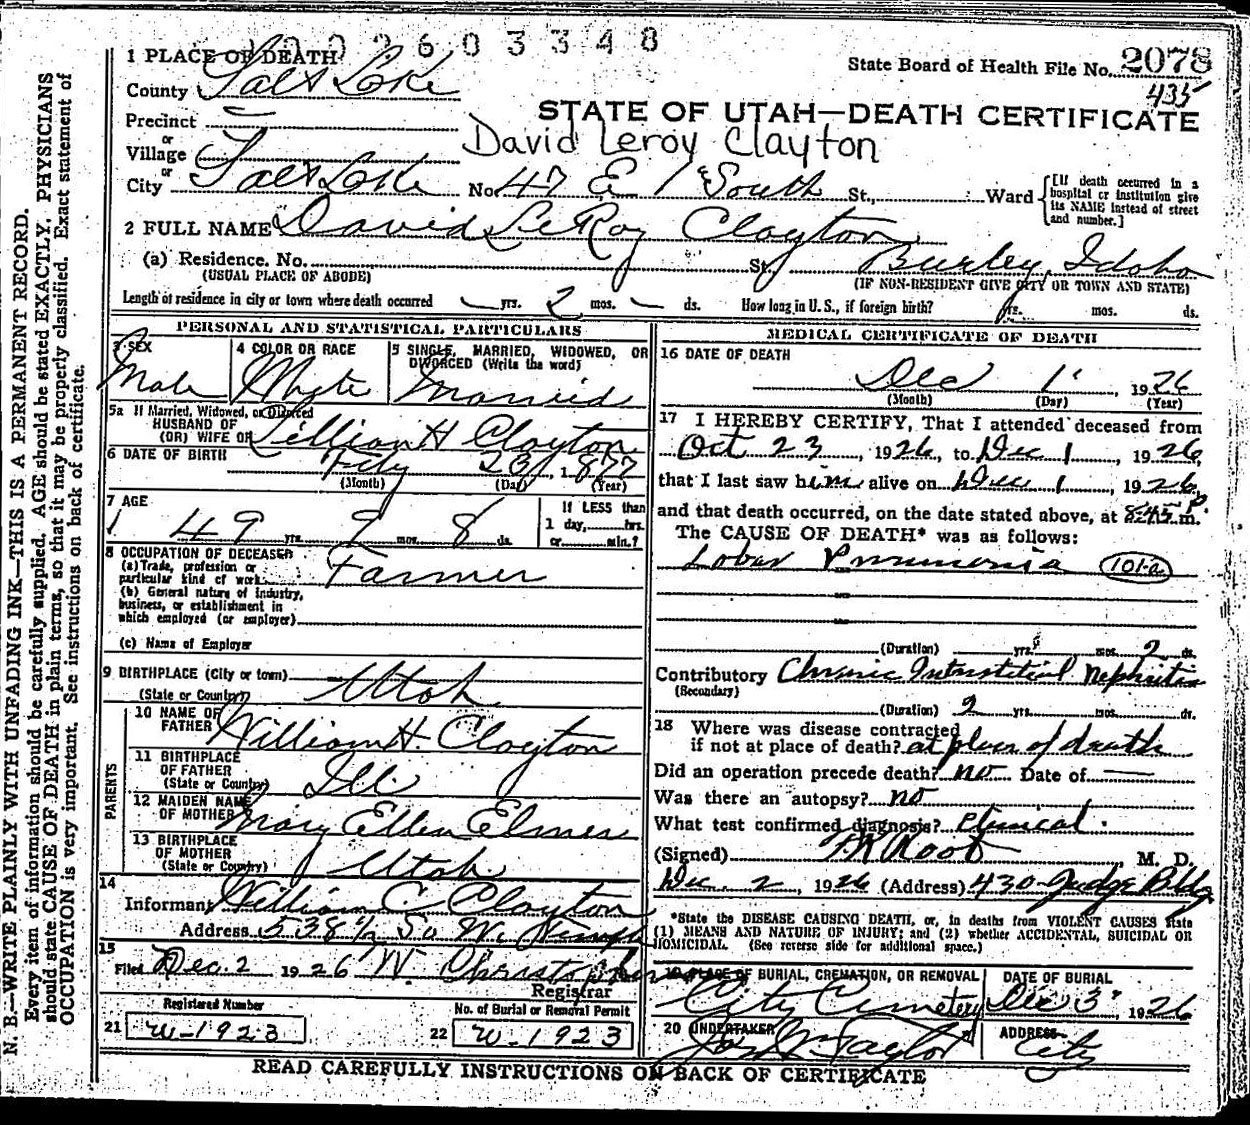 2 6 0 3 3 4 8
1 PLACE OF DEATH
State Board of Health File No. 2078
County Salt Lake
435
STATE OF UTAH—DEATH CERTIFICATE
Precinct
David Leroy Clayton
or
Village
or
City Salt Lake No. 47 E 1 South St., Ward
[If death occurred in a hospital or institution give its NAME instead of street and number.]
2 FULL NAME David LeRoy Clayton
(a) Residence. No. St. Burley, Idaho
(USUAL PLACE OF ABODE) (IF NON-RESIDENT GIVE CITY OR TOWN AND STATE)
Length of residence in city or town where death occurred — yrs. 2 mos. — ds. How long in U. S., if foreign birth? yrs. mos. ds.
PERSONAL AND STATISTICAL PARTICULARS
3 SEX
Male
4 COLOR OR RACE
White
5 SINGLE, MARRIED, WIDOWED, OR DIVORCED (Write the word)
Married
5a If Married, Widowed, or Divorced
HUSBAND OF
(OR) WIFE OF Lillian H Clayton
6 DATE OF BIRTH 23 1877
(Month) (Day) (Year)
7 AGE
49 yrs. 9 mos. 8 ds.
If LESS than
1 day, hrs.
or min.?
8 OCCUPATION OF DECEASED
(a) Trade, profession or
particular kind of work Farmer
(b) General nature of Industry,
business, or establishment in
which employed (or employer)
(c) Name of Employer
9 BIRTHPLACE (City or town)
(State or Country) Utah
PARENTS
10 NAME OF
FATHER William H. Clayton
11 BIRTHPLACE
OF FATHER
(State or Country) Ill
12 MAIDEN NAME
OF MOTHER Mary Ellen Elmer
13 BIRTHPLACE
OF MOTHER
(State or Country) Utah
14
Informant William C Clayton
Address 538 1/2 So W.
15
Filed Dec. 2 1926 W. Christopherson
Registrar
Registered Number
21 W-1923
No. of Burial or Removal Permit
22 W-1923
MEDICAL CERTIFICATE OF DEATH
16 DATE OF DEATH
Dec 1 1926
(Month) (Day) (Year)
17 I HEREBY CERTIFY, That I attended deceased from
Oct 23, 1926, to Dec 1, 1926,
that I last saw him alive on Dec 1, 1926,
and that death occurred, on the date stated above, at 8:45 P. m.
The CAUSE OF DEATH* was as follows:
Lobar Pneumonia 101-a
(Duration) yrs. mos. 2 ds.
Contributory Chronic Interstitial Nephritis
(Secondary)
(Duration) 2 yrs. mos. ds.
18 Where was disease contracted
if not at place of death? at place of death
Did an operation precede death? no Date of —
Was there an autopsy? no
What test confirmed diagnosis? Clinical.
(Signed) Root, M. D.
Dec. 2, 1926 (Address) 430 Judge Bldg
*State the DISEASE CAUSING DEATH, or, in deaths from VIOLENT CAUSES state
(1) MEANS AND NATURE OF INJURY; and (2) whether ACCIDENTAL, SUICIDAL OR
HOMICIDAL. (See reverse side for additional space.)
19 PLACE OF BURIAL, CREMATION, OR REMOVAL
City Cemetery
DATE OF BURIAL
Dec 3, 1926
20 UNDERTAKER
Jos Wm Taylor
ADDRESS
City
READ CAREFULLY INSTRUCTIONS ON BACK OF CERTIFICATE
N. B.—WRITE PLAINLY WITH UNFADING INK—THIS IS A PERMANENT RECORD.
Every item of information should be carefully supplied. AGE should be stated EXACTLY. PHYSICIANS
should state CAUSE OF DEATH in plain terms, so that it may be properly classified. Exact statement of
OCCUPATION is very important. See instructions on back of certificate.